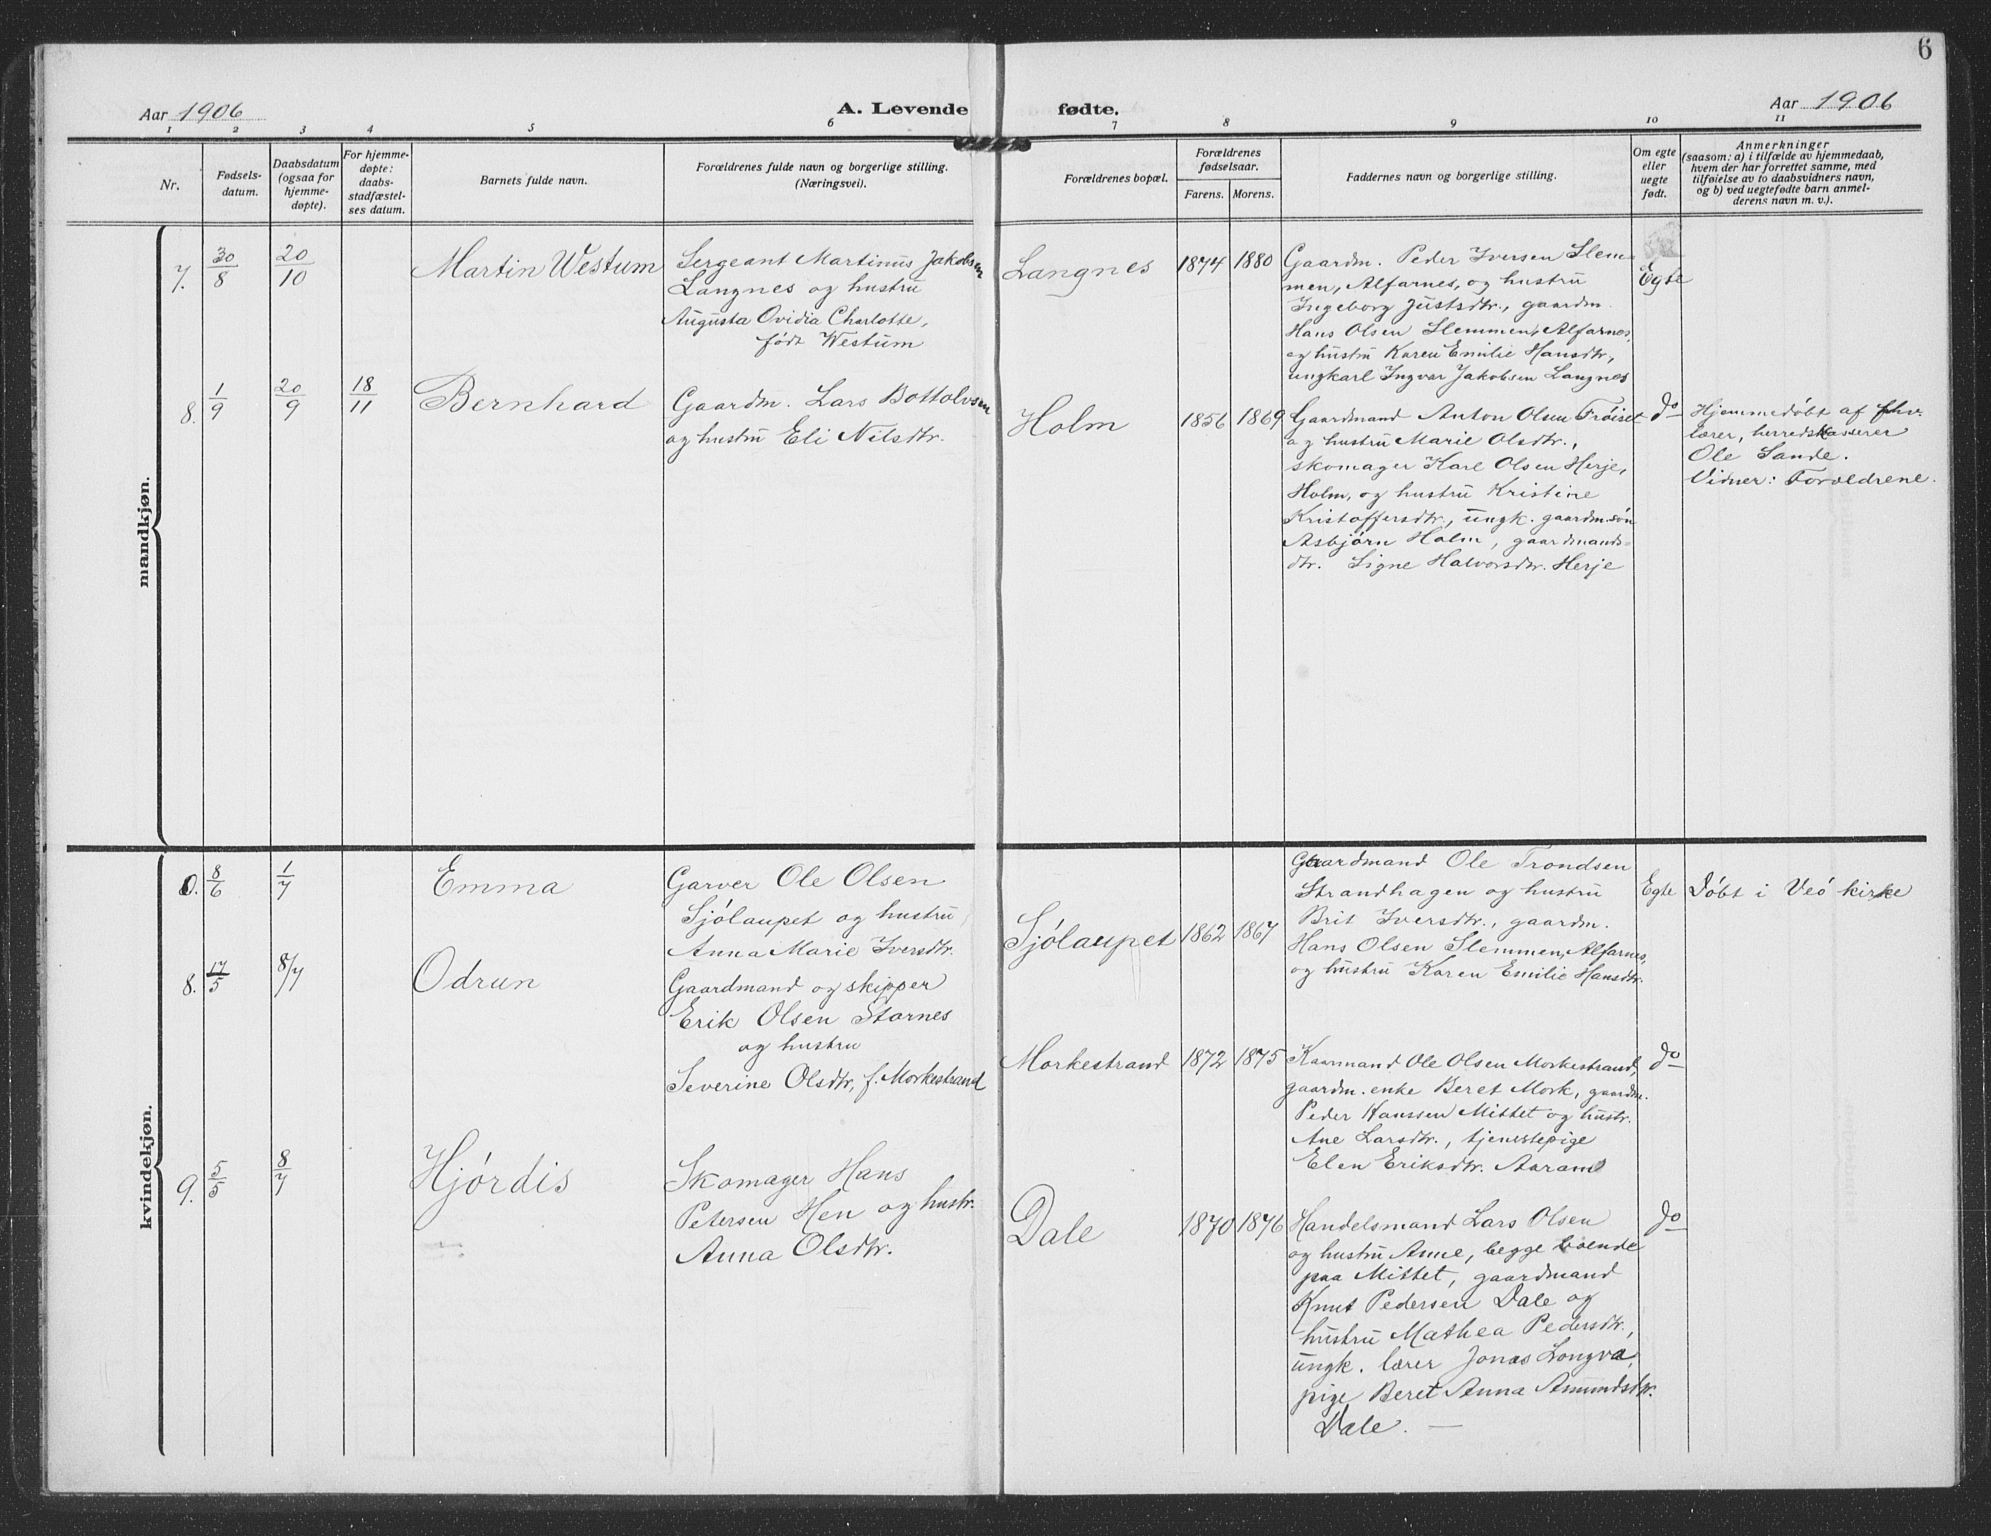 6
Aar 1906
A. Levende fødte.
Aar 1906
1 2 3 4 5 6 7 8 9 10 11
Nr.
Fødsels-
datum.
Daabsdatum
(ogsaa for
hjemme-
døpte).
For hjemme-
døpte:
daabs-
stadfæstel-
ses datum.
Barnets fulde navn.
Forældrenes fulde navn og borgerlige stilling.
(Næringsvei).
Forældrenes bopæl.
Forældrenes
fødselsaar.
Farens. Morens.
Faddernes navn og borgerlige stilling.
Om egte
eller
uegte
født.
Anmerkninger
(saasom: a) i tilfælde av hjemmedaab,
hvem der har forrettet samme, med
tilføielse av to daabsvidners navn,
og b) ved uegtefødte barn anmel-
derens navn m. v.).
mandkjøn.
7. 30/8 20/10
Martin Westum
Sergeant Martinus Jakobsen
Langnes og hustru
Augusta Ovidia Charlotte,
født Westum
Langnes 1874 1880
Gaardm. Peder Iversen Slem-
men, Alfarnes, og hustru
Ingeborg Justsdtr., gaardm.
Hans Olsen Slemmen, Alfarnes,
og hustru Karen Emilie Hansdtr,
ungkarl Ingvar Jakobsen Langnes
Egte
8. 1/9 20/9 18/11
Bernhard
Gaardm. Lars Bottolvsen
og hustru Eli Nilsdtr.
Holm 1856 1869
Gaardmand Anton Olsen Frøiset
og hustru Marie Olsdtr.,
skomager Karl Olsen Herje,
Holm, og hustru Kristine
Kristoffersdtr., ungk. gaardm.søn
Asbjørn Holm, gaardmands-
dtr. Signe Halvorsdtr. Herje
do
Hjemmedøbt af fhv.
lærer, herredskasserer
Ole Sande.
Vidner: Forældrene.
kvindekjøn.
8/6 1/7
Emma
Garver Ole Olsen
Sjølaupet og hustru
Anna Marie Iversdtr.
Sjølaupet 1862 1867
Gaardmand Ole Trondsen
Strandhagen og hustru
Brit Iversdtr., gaardm.
Hans Olsen Slemmen, Alfarnes,
og hustru Karen Emilie Hansdtr.
Egte
Døbt i Veø kirke
8. 17/5 8/7
Odrun
Gaardmand og skipper
Erik Olsen Stornes
og hustru
Severine Olsdtr, f. Morkestrand
Morkestrand 1872 1875
Kaarmand Ole Olsen Morkestrand,
gaardm. enke Beret Mork, gaardm.
Peder Hanssen Mittet og hustr.
Ane Larsdtr., tjenestepige
Elen Eriksdtr. Aaram
do
9. 5/5 8/7
Hjørdis
Skomager Hans
Petersen Hen og hustr.
Anna Olsdtr.
Dale 1870 1876
Handelsmand Lars Olsen
og hustru Anne, begge boende
paa Mittet, gaardmand
Knut Pedersen Dale og
hustru Mathea Pedersdtr.,
ungk. lærer Jonas Longva,
pige Beret Anna Amundsdtr.
Dale. —
do